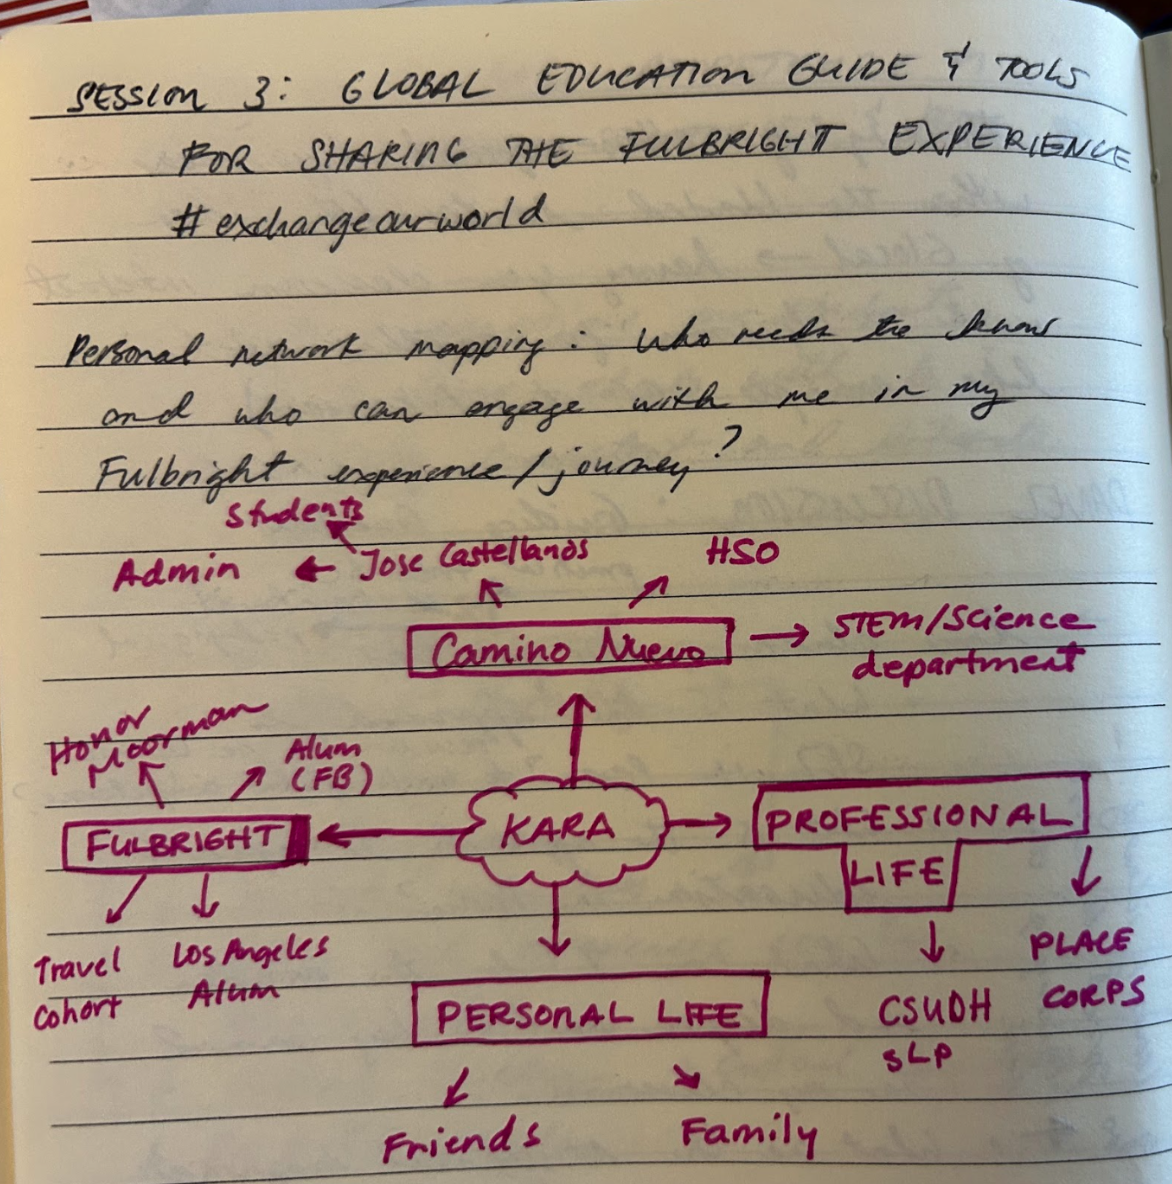 SESSION 3: GLOBAL EDUCATION GUIDE & TOOLS
FOR SHARING THE FULBRIGHT EXPERIENCE
#exchangeourworld
Personal network mapping: Who needs to know
and who can engage with me in my
Fulbright experience/journey?
Students
Admin
Jose Castellanos
HSO
Camino Nuevo
STEM/Science
department
Honor
Moorman
Alum
(FB)
FULBRIGHT
KARA
PROFESSIONAL
LIFE
Travel
Cohort
Los Angeles
Alum
PERSONAL LIFE
CSUDH
SLP
PLACE
CORPS
Friends
Family